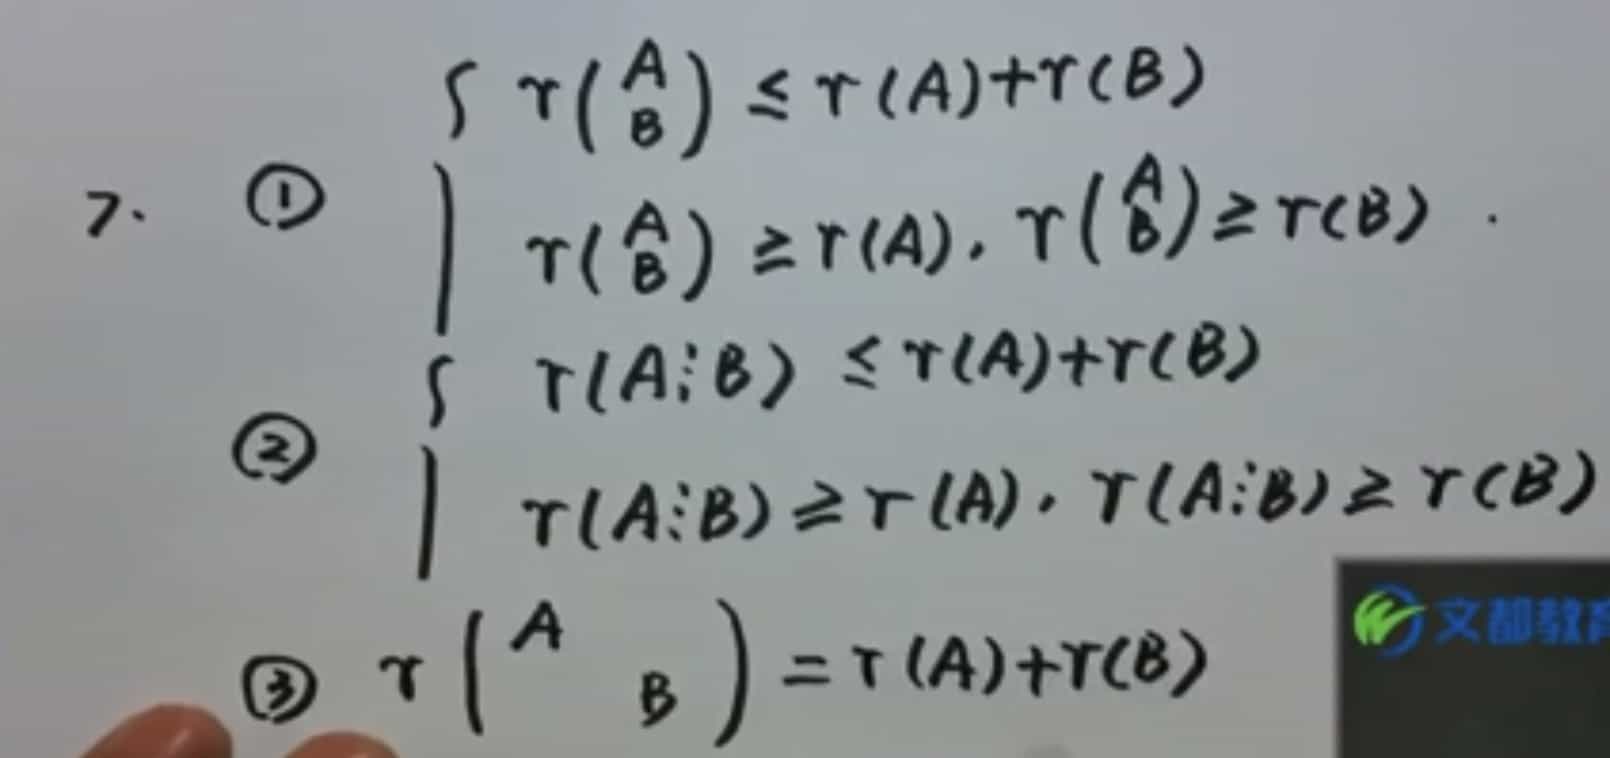 7. ① { r(A/B) ≤ r(A)+r(B)
r(A/B) ≥ r(A), r(A/B) ≥ r(B).
② { r(A⋮B) ≤ r(A)+r(B)
r(A⋮B) ≥ r(A), r(A⋮B) ≥ r(B)
③ r(A B) = r(A)+r(B)
文都教育